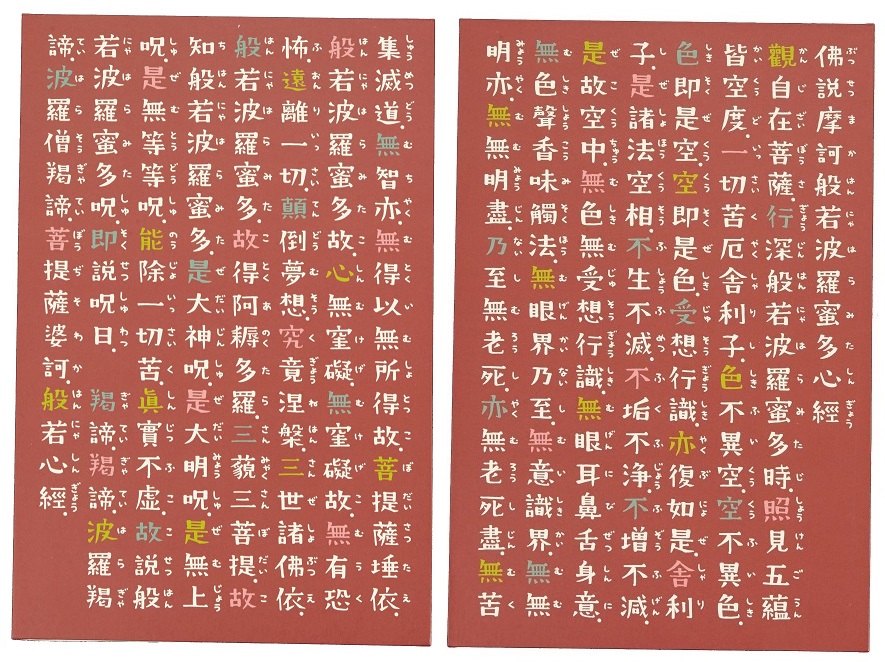 佛說摩訶般若波羅蜜多心經
觀自在菩薩.行深般若波羅蜜多時.照見五蘊
皆空度.一切苦厄舍利子.色不異空.空不異色.
色即是空.空即是色.受想行識.亦復如是.舍利
子.是諸法空相.不生不滅.不垢不淨.不增不減.
是故空中.無色無受想行識.無眼耳鼻舌身意.
無色聲香味觸法.無眼界乃至.無意識界.無無
明亦.無無明盡.乃至無老死.亦無老死盡.無苦
集滅道.無智亦.無得以無所得故.菩提薩埵依.
般若波羅蜜多故.心無罣礙.無罣礙故.無有恐
怖.遠離一切.顛倒夢想.究竟涅槃.三世諸佛依.
般若波羅蜜多.故得阿耨多羅.三藐三菩提.故
知般若波羅蜜多.是大神呪.是大明呪.是無上
呪.是無等等呪.能除一切苦.眞實不虛.故說般
若波羅蜜多呪.即說呪曰.羯諦.羯諦.波羅羯
諦.波羅僧羯諦.菩提薩婆訶.般若心經.